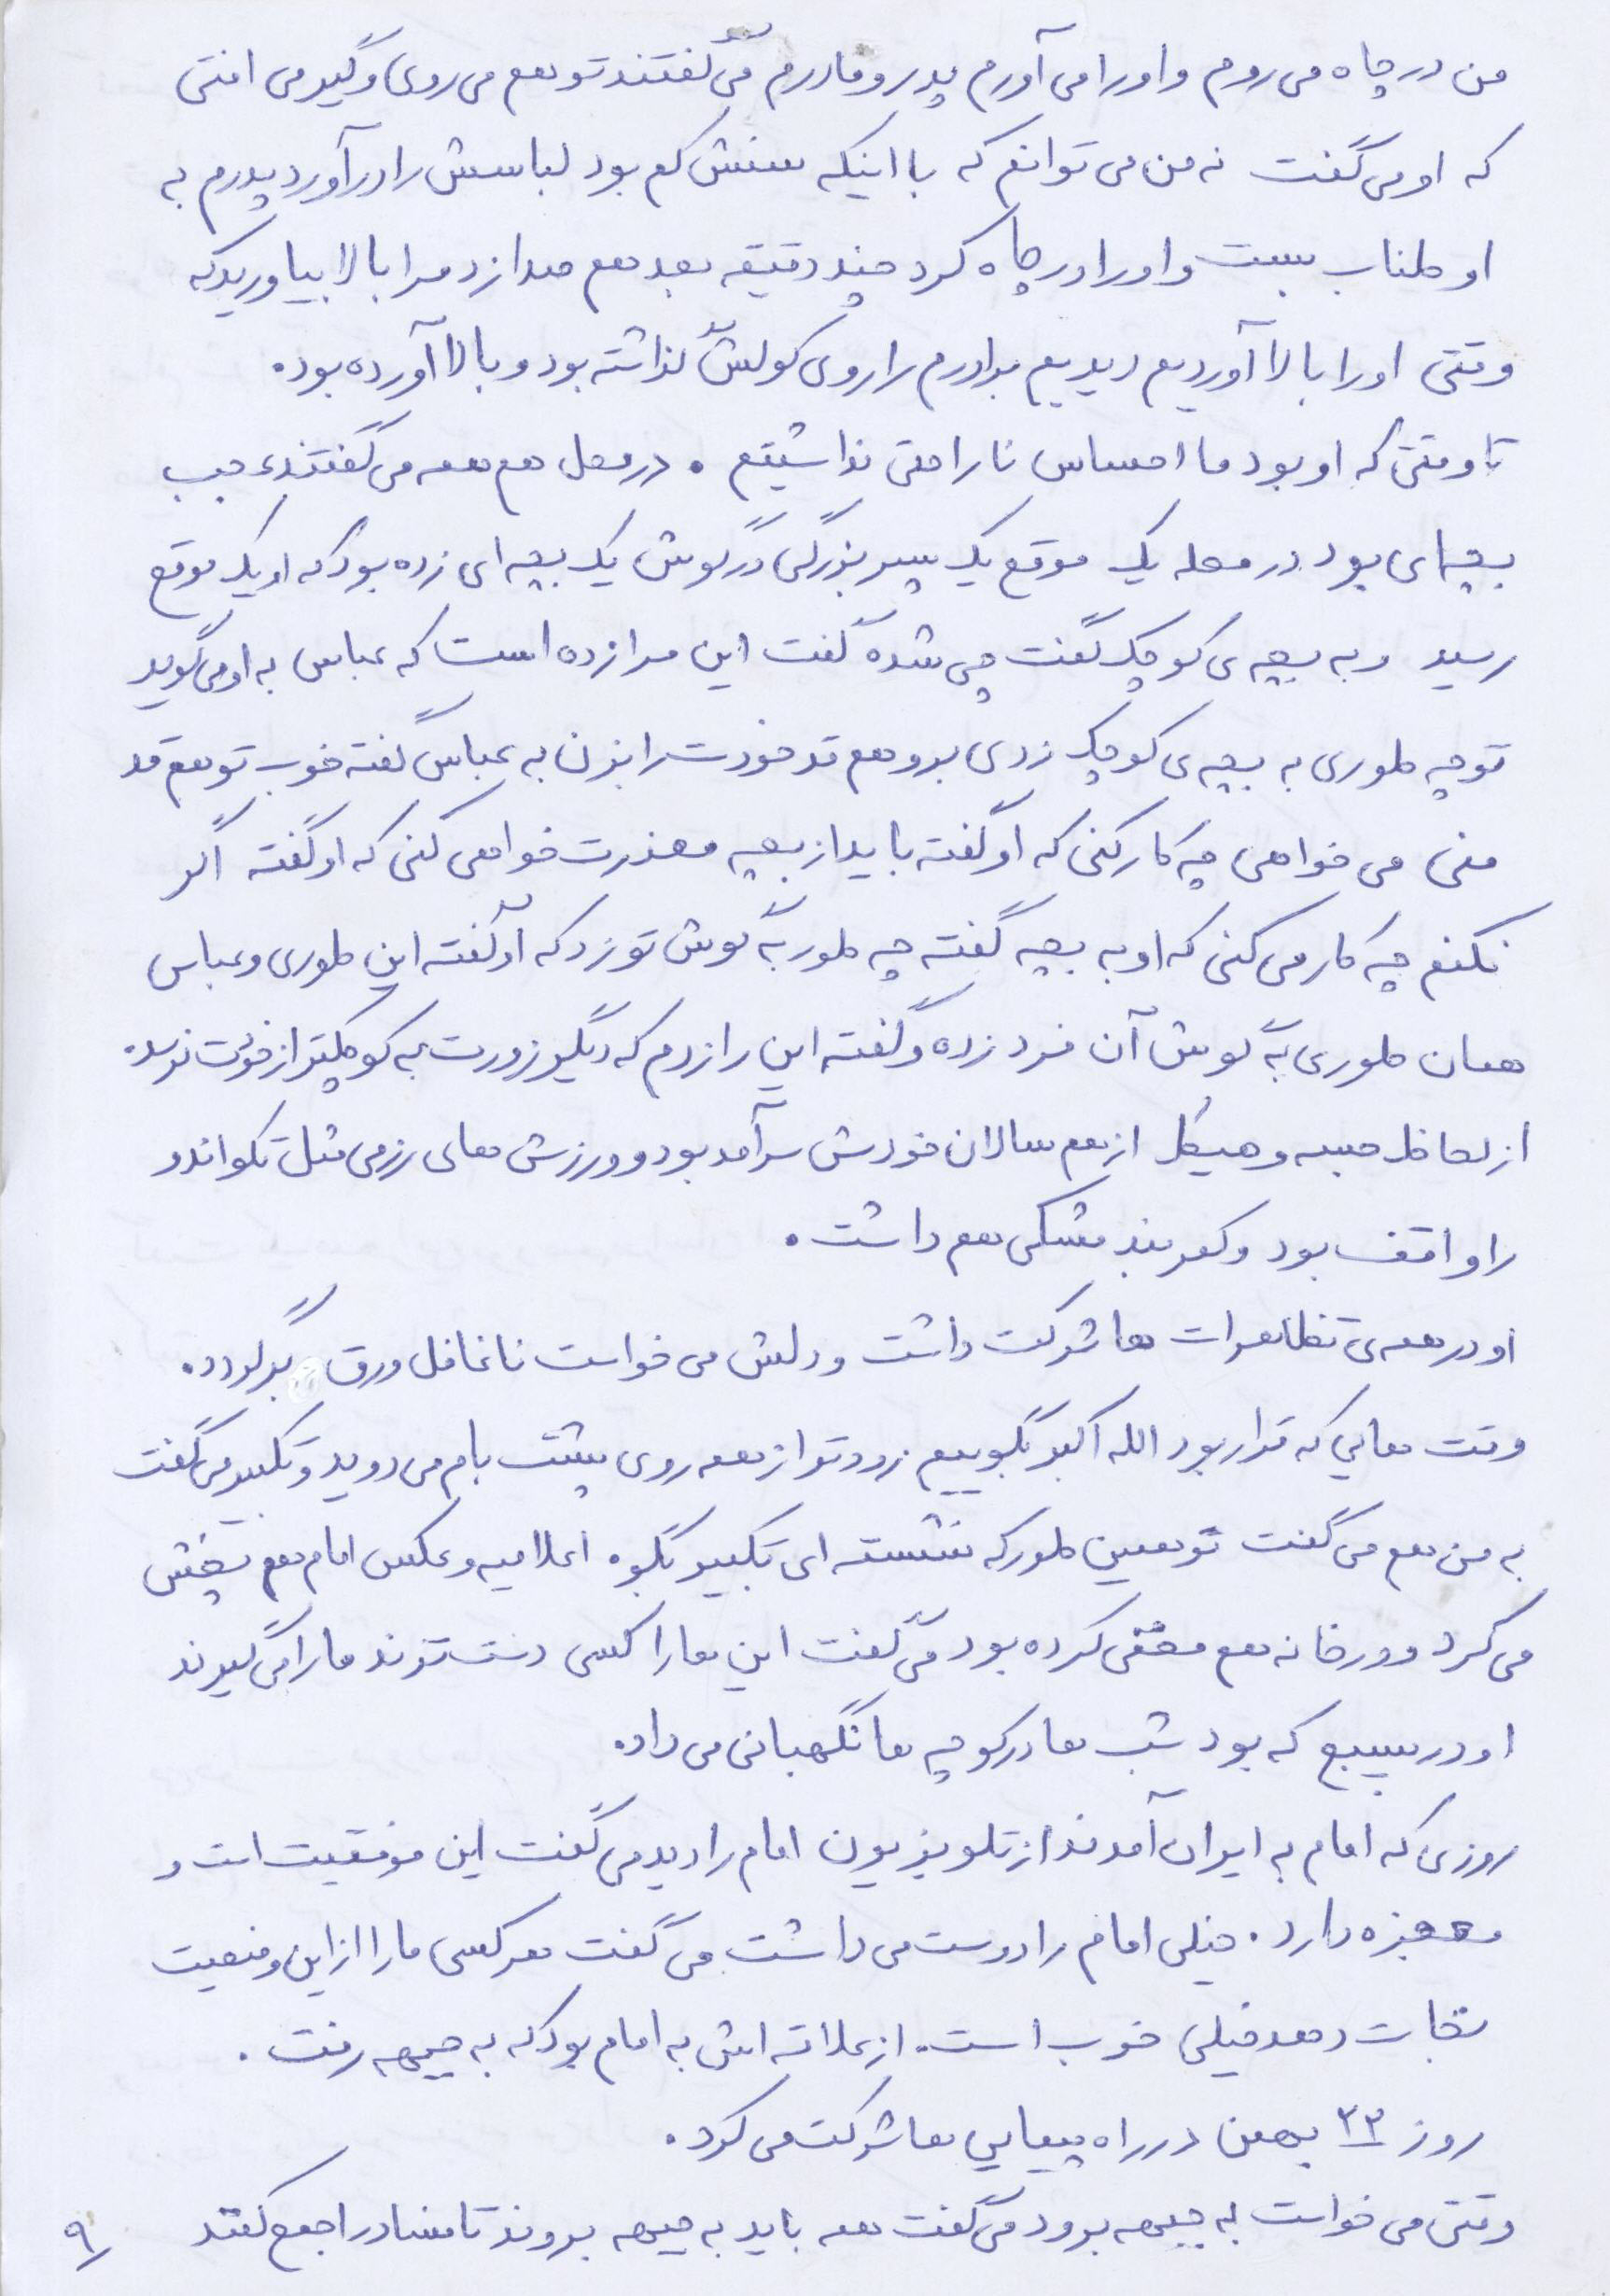 من در چاه می روم و او را می آورم پدر و مادرم می گفتند تو هم می روی و گیر می افتی
که او می گفت نه من می توانم که با اینکه سنش کم بود لباسش را درآورد پدرم به
او طناب بست و او را در چاه کرد چند دقیقه بعد هم صدا زد مرا بالا بیاورید که
وقتی او را بالا آوردیم دیدیم برادرم را روی کولش گذاشته بود و بالا آورده بود.
تا وقتی که او بود ما احساس ناراحتی نداشتیم . در محل هم همه می گفتند عجب
بچه ای بود در محله یک موقع یک پسر بزرگی در گوش یک بچه ای زده بود که او یک موقع
رسید و به بچه ی کوچک گفت چی شده گفت این مرا زده است که عباس به او می گوید
تو چه طوری به بچه ی کوچک زدی برو هم قد خودت را بزن به عباس گفته خوب تو هم قد
منی می خواهی چه کار کنی که او گفته باید از بچه معذرت خواهی کنی که او گفته اگر
نکنم چه کار می کنی که او به بچه گفته چه طور به گوش تو زد که او گفته این طوری و عباس
همان طوری به گوش آن فرد زده و گفته این را زدم که دیگر زورت به کوچکتر از خودت نرسد.
از لحاظ جسه و هیکل از هم سالان خودش سرآمد بود و ورزش های رزمی مثل تکواندو
را واقف بود و کمربند مشکی هم داشت .
او در همه ی تظاهرات ها شرکت داشت و دلش می خواست ناغافل ورق برگردد.
وقت هایی که قرار بود الله اکبر بگوییم زودتر از همه روی پشت بام می دوید و تکبیر می گفت
به من هم می گفت تو همین طور که نشسته ای تکبیر بگو. اعلامیه و عکس امام هم پخش
می کرد و در خانه هم مخفی کرده بود می گفت این ها را کسی دست نزند ما را می گیرند
او در بسیج که بود شب ها در کوچه ها نگهبانی می داد.
روزی که امام به ایران آمدند از تلویزیون امام را دید می گفت این موفقیت است و
معجزه دارد . خیلی امام را دوست می داشت می گفت هر کسی ما را از این وضعیت
نجات دهد خیلی خوب است. از علاقه اش به امام بود که به جبهه رفت .
روز ۲۲ بهمن در راه پیمایی ها شرکت می کرد .
وقتی می خواست به جبهه برود می گفت همه باید به جبهه بروند تا فساد را جمع کنند
۹